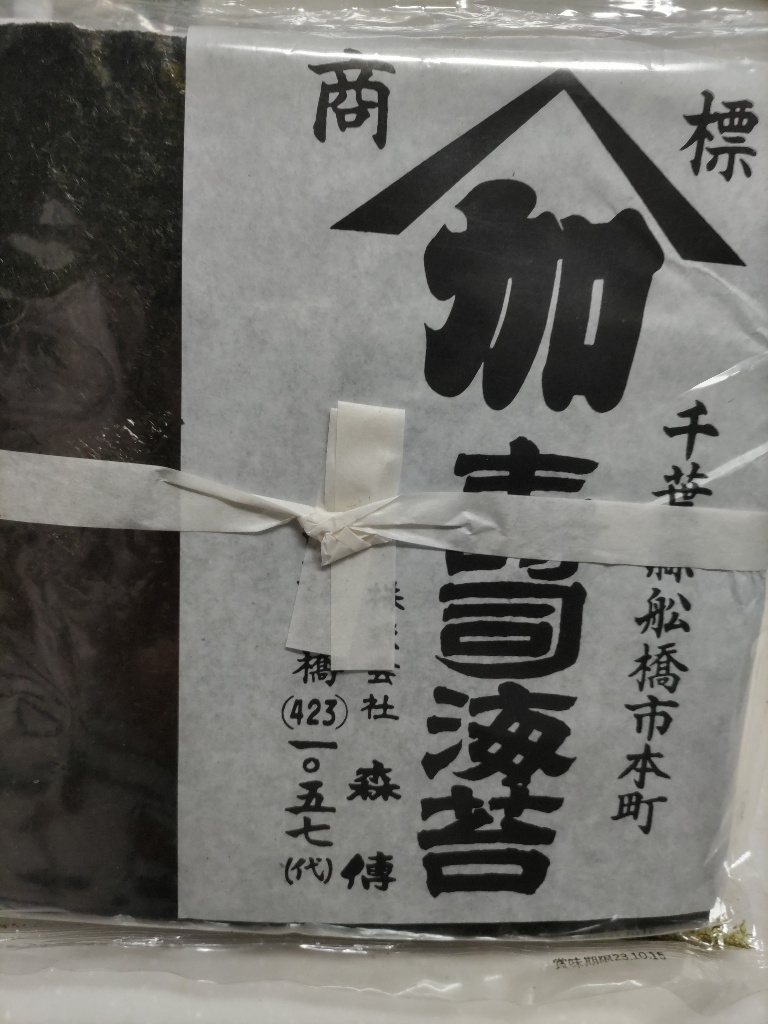 商標
加
千葉縣船橋市本町
司海苔
会社 森傳
橋(423)一〇五七(代)
賞味期限23.10.15